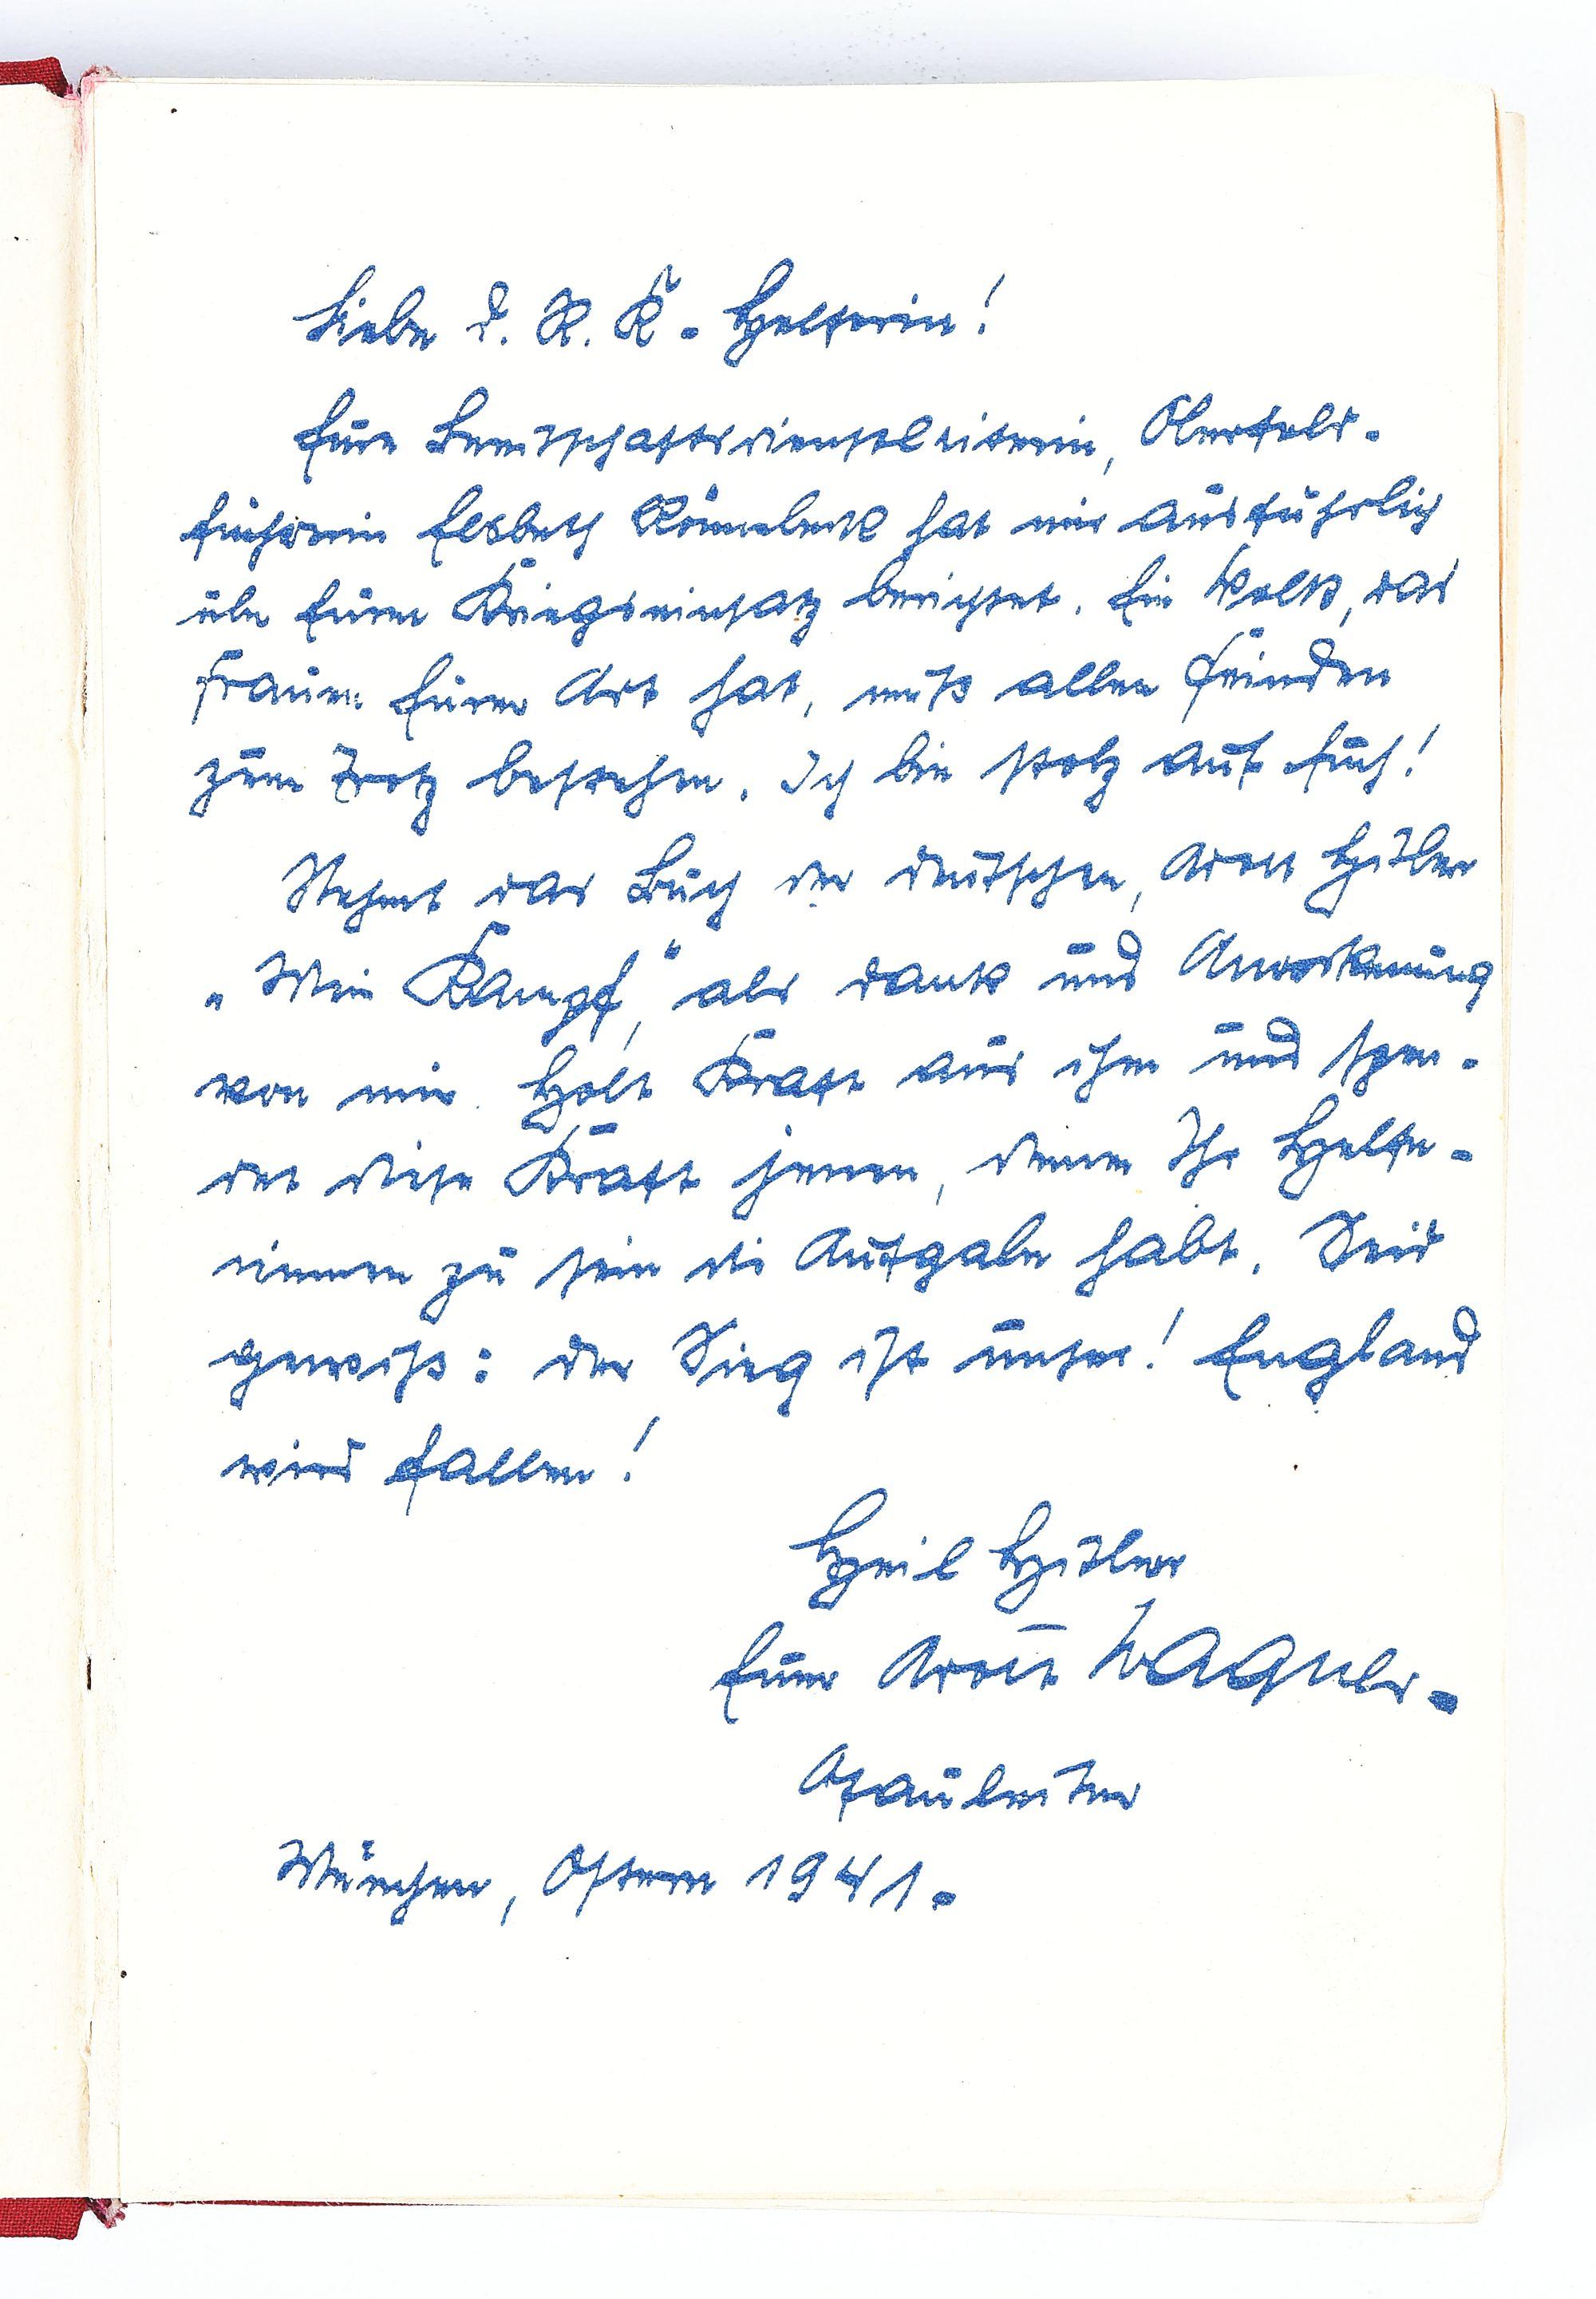 Liebe D. R. K. - Helferin!
Eure Bereitschaftsdienstleiterin, Oberfeld-
führerin Elsbeth hat mir ausführlich
über Euren Kriegseinsatz berichtet. Ein Volk, das
Frauen Eurer Art hat, muß allen Feinden
zum Trotz bestehen. Ich bin stolz auf Euch!
Nehmt das Buch der Deutschen, Adolf Hitler
„Mein Kampf," als Dank und Anerkennung
von mir. Holt Kraft aus ihm und spen-
det diese Kraft jenen, denen Ihr Helfe-
rinnen zu sein die Aufgabe habt. Seid
gewiß: der Sieg ist unser! England
wird fallen!
Heil Hitler
Euer Adolf Wagner.
Gauleiter
München, Ostern 1941.